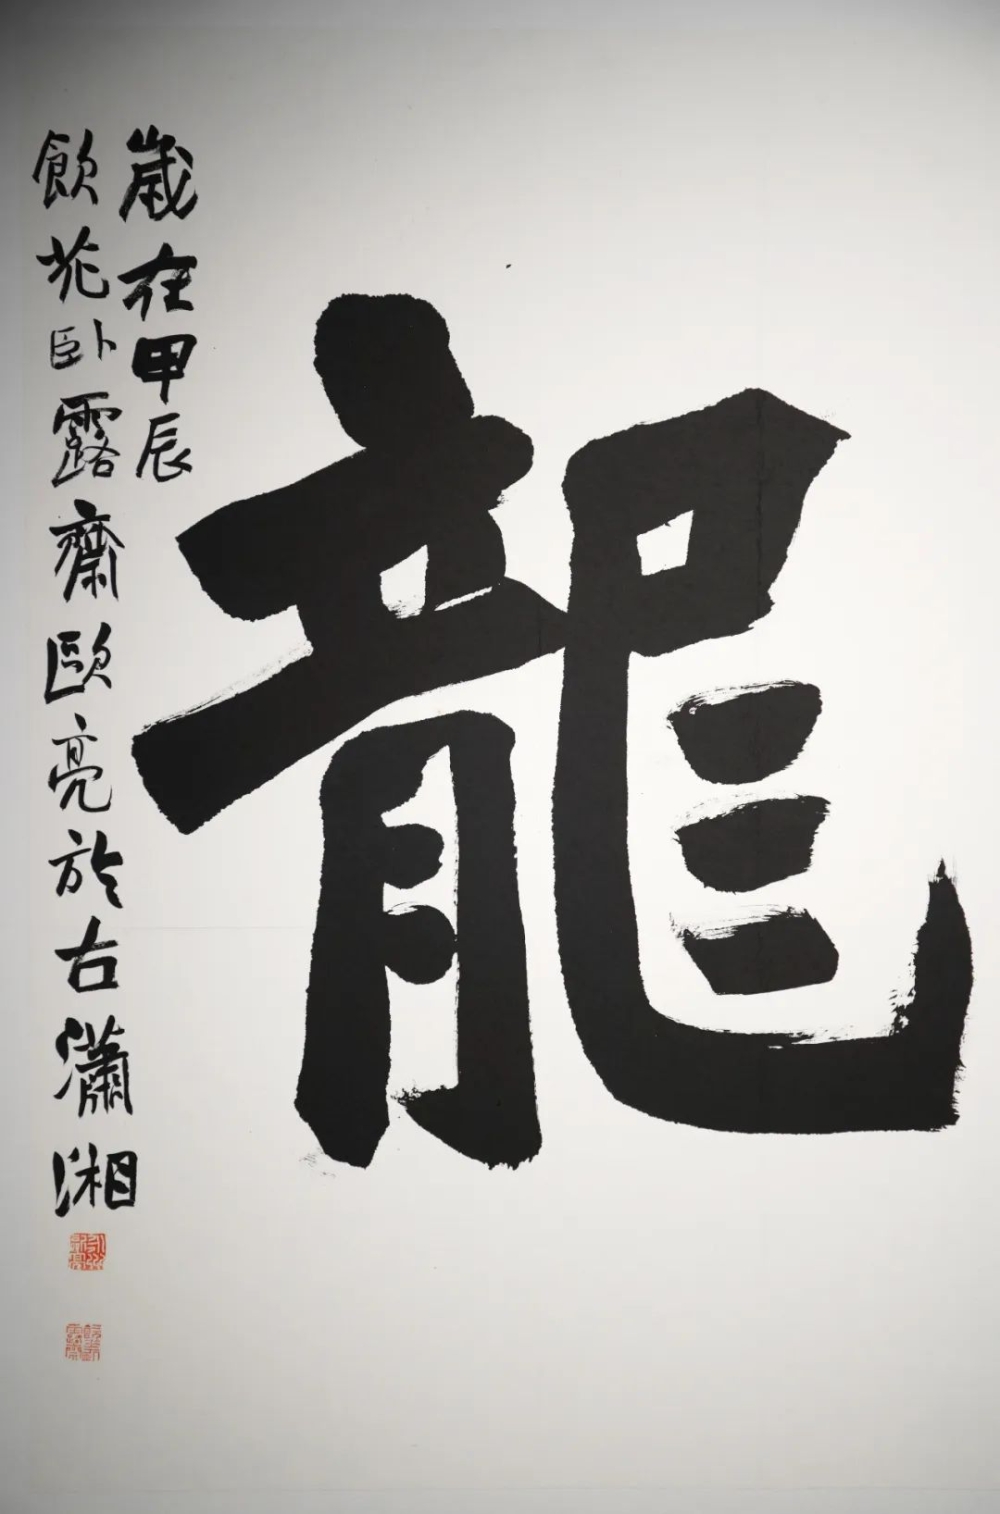 龍
歲在甲辰
飲花卧露齋歐亮於古瀟湘